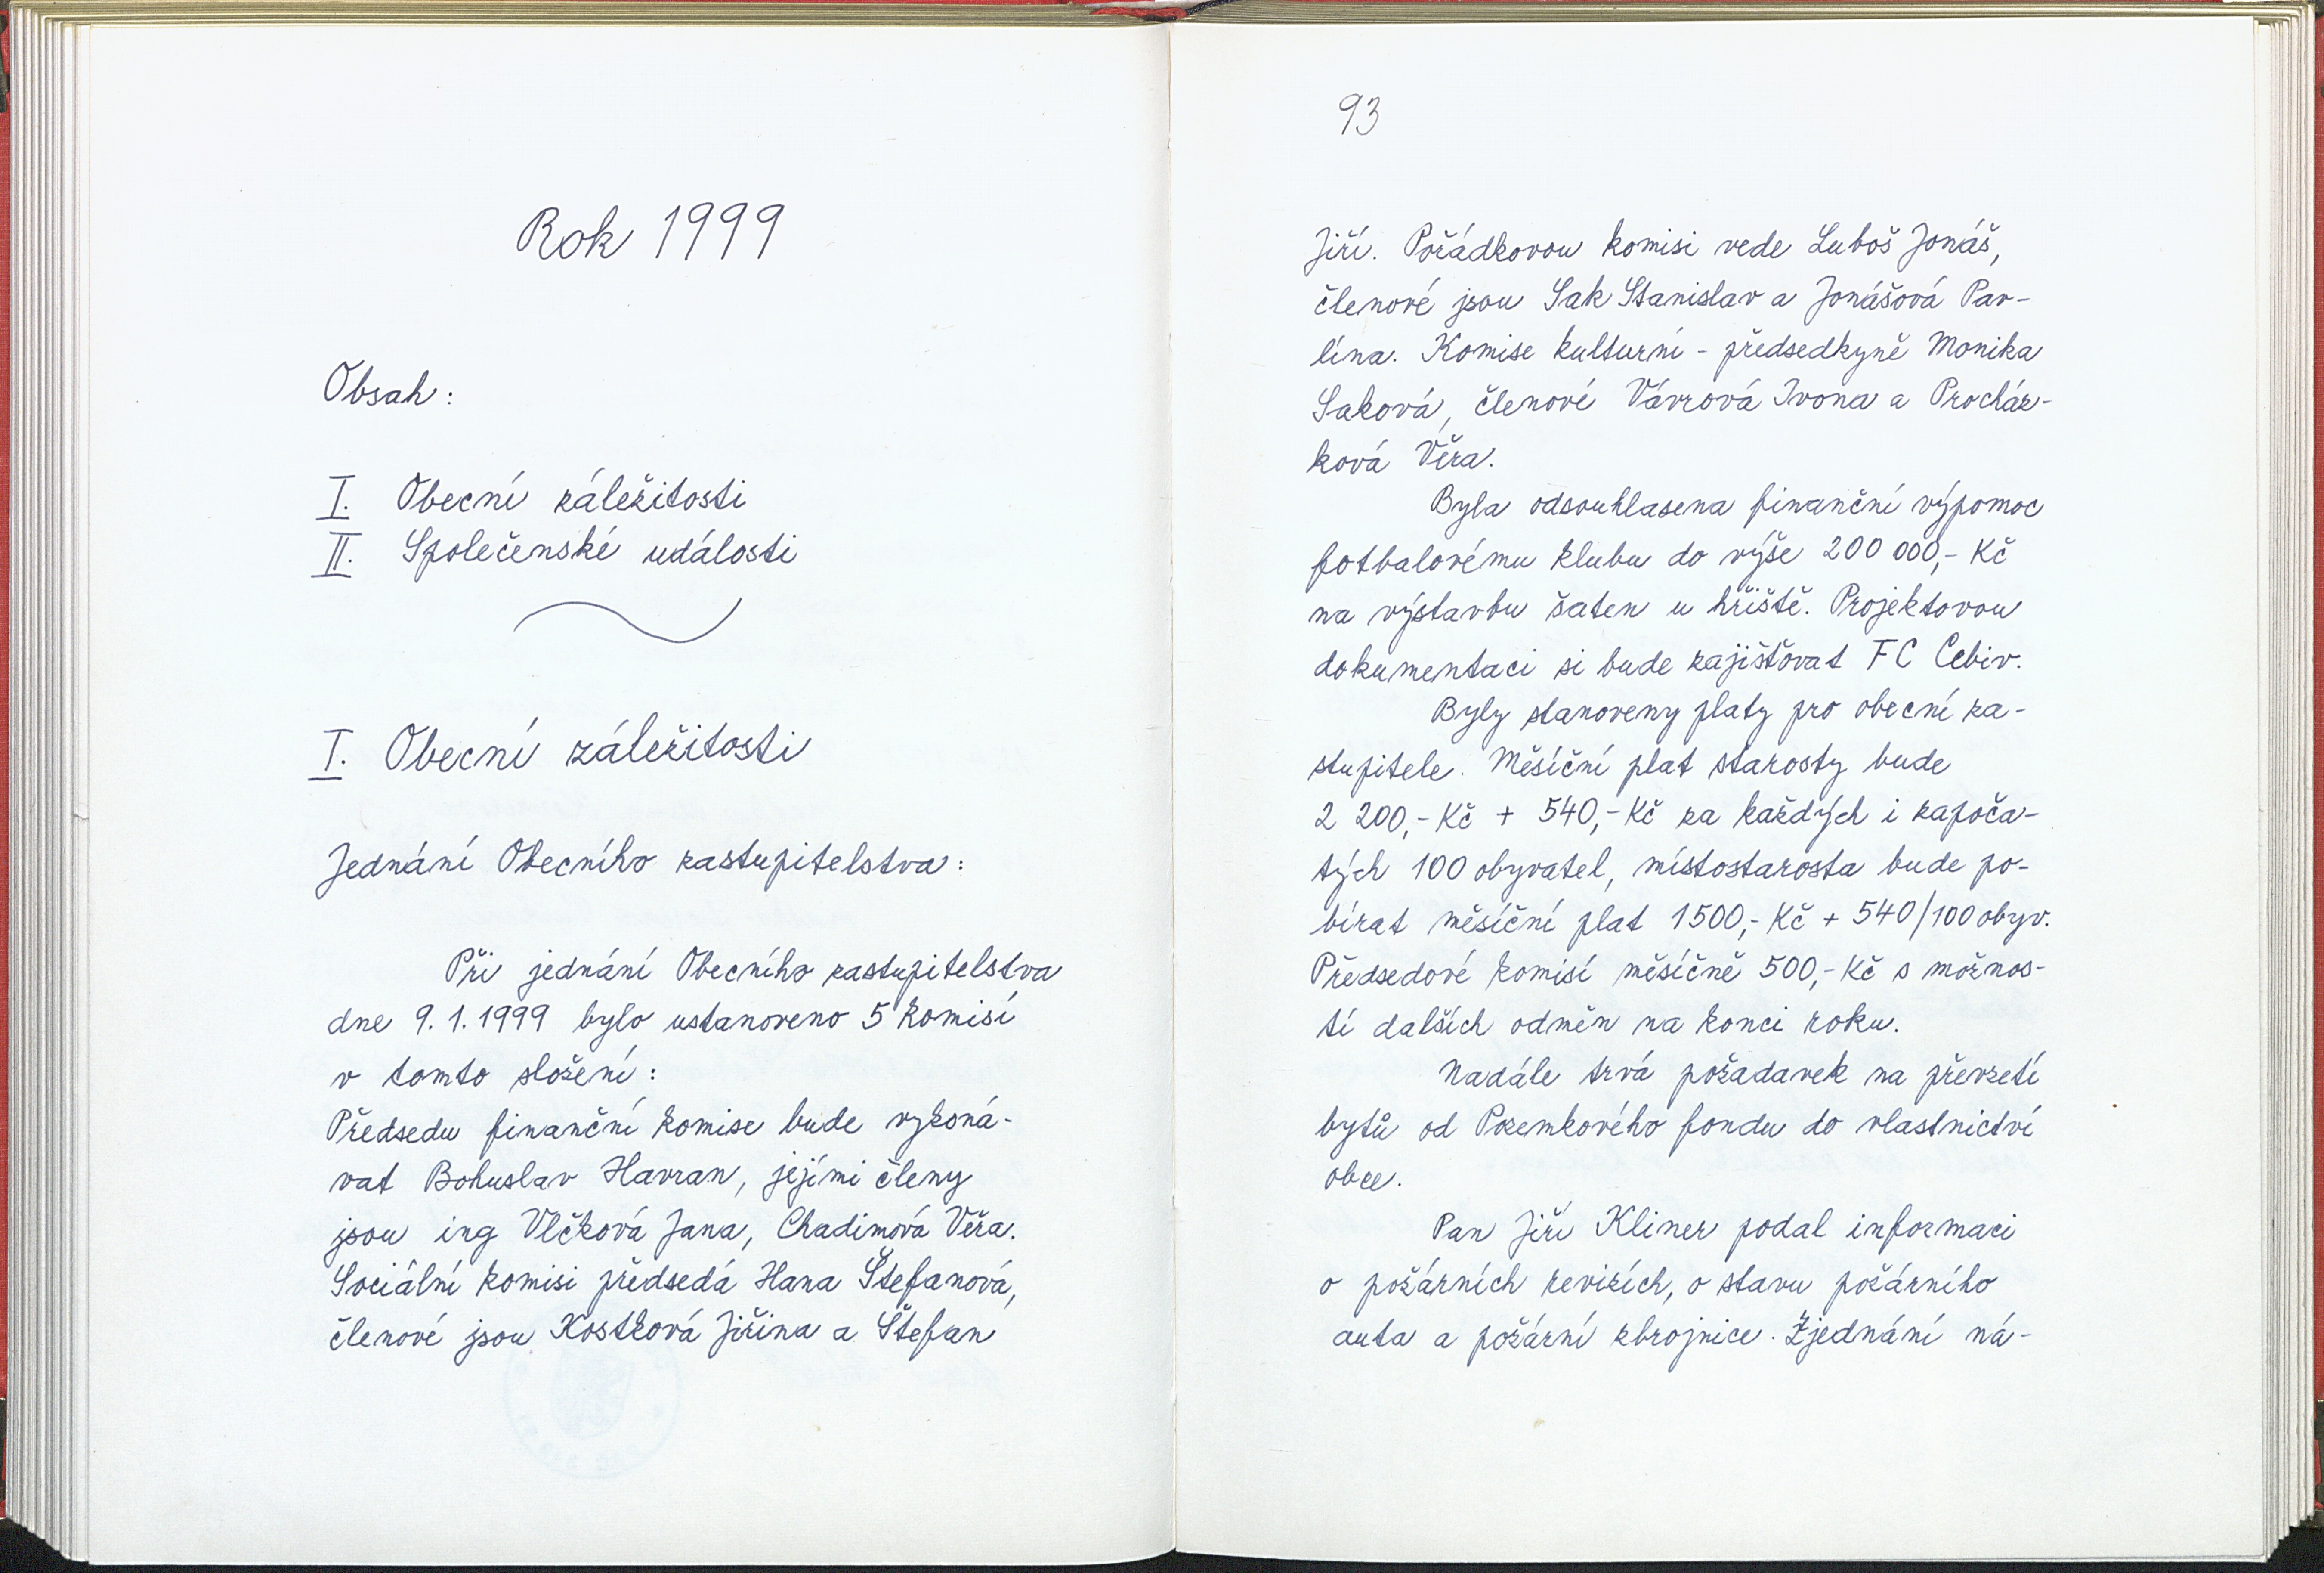 Rok 1999
Obsah:
I. Obecní záležitosti
II. Společenské události
I. Obecní záležitosti
Jednání Obecního zastupitelstva:
Při jednání Obecního zastupitelstva
dne 9. 1. 1999 bylo ustanoveno 5 komisí
v tomto složení:
Předsedu finanční komise bude vykoná-
vat Bohuslav Havran, jejími členy
jsou ing Vlčková Jana, Chadimová Věra.
Sociální komisi předsedá Hana Štefanová,
členové jsou Kostková Jiřina a Štefan
93
Jiří. Pořádkovou komisi vede Luboš Jonáš,
členové jsou Sak Stanislav a Jonášová Pav-
lína. Komise kulturní - předsedkyně Monika
Saková, členové Vávrová Ivona a Procház-
ková Věra.
Byla odsouhlasena finanční výpomoc
fotbalovému klubu do výše 200 000,- Kč
na výstavbu šaten u hřiště. Projektovou
dokumentaci si bude zajišťovat FC Cebiv.
Byly stanoveny platy pro obecní za-
stupitele. Měsíční plat starosty bude
2 200,- Kč + 540,- Kč za každých i započa-
tých 100 obyvatel, místostarosta bude po-
bírat měsíční plat 1500,- Kč + 540/100 obyv.
Předsedové komisí měsíčně 500,- Kč s možnos-
tí dalších odměn na konci roku.
Nadále trvá požadavek na převzetí
bytů od Pozemkového fondu do vlastnictví
obce.
Pan Jiří Kliner podal informaci
o požárních revizích, o stavu požárního
auta a požární zbrojnice. Zjednání ná-